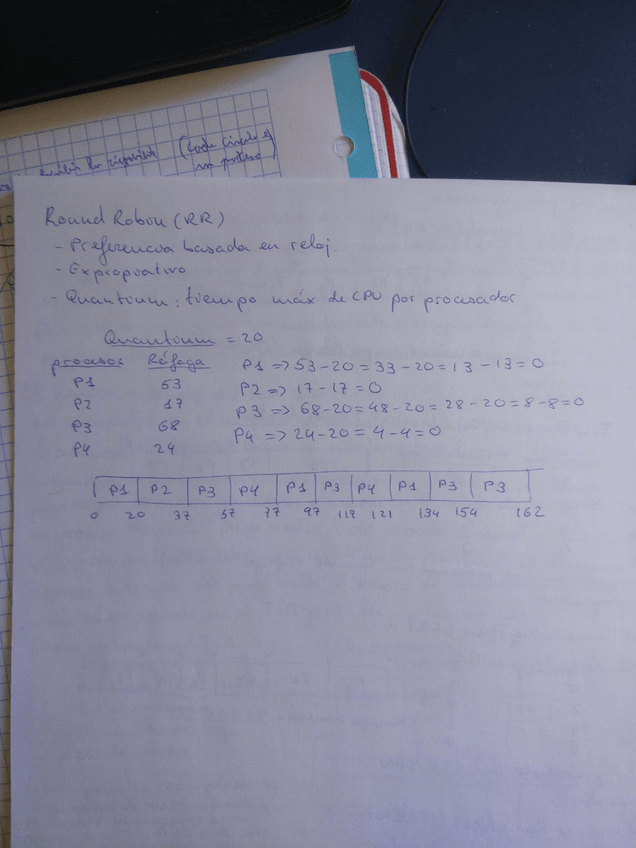 (cada círculo es
un proceso)
Round Robin (RR)
- Preferencia basada en reloj.
- Expropiativo
- Quantium: tiempo máx de CPU por procesador
Quantium = 20
procesos Ráfaga
P1 53
P2 17
P3 68
P4 24
P1 => 53-20 = 33-20 = 13-13 = 0
P2 => 17-17 = 0
P3 => 68-20 = 48-20 = 28-20 = 8-8 = 0
P4 => 24-20 = 4-4 = 0
P1 P2 P3 P4 P1 P3 P4 P1 P3 P3
0 20 37 57 77 97 117 121 134 154 162